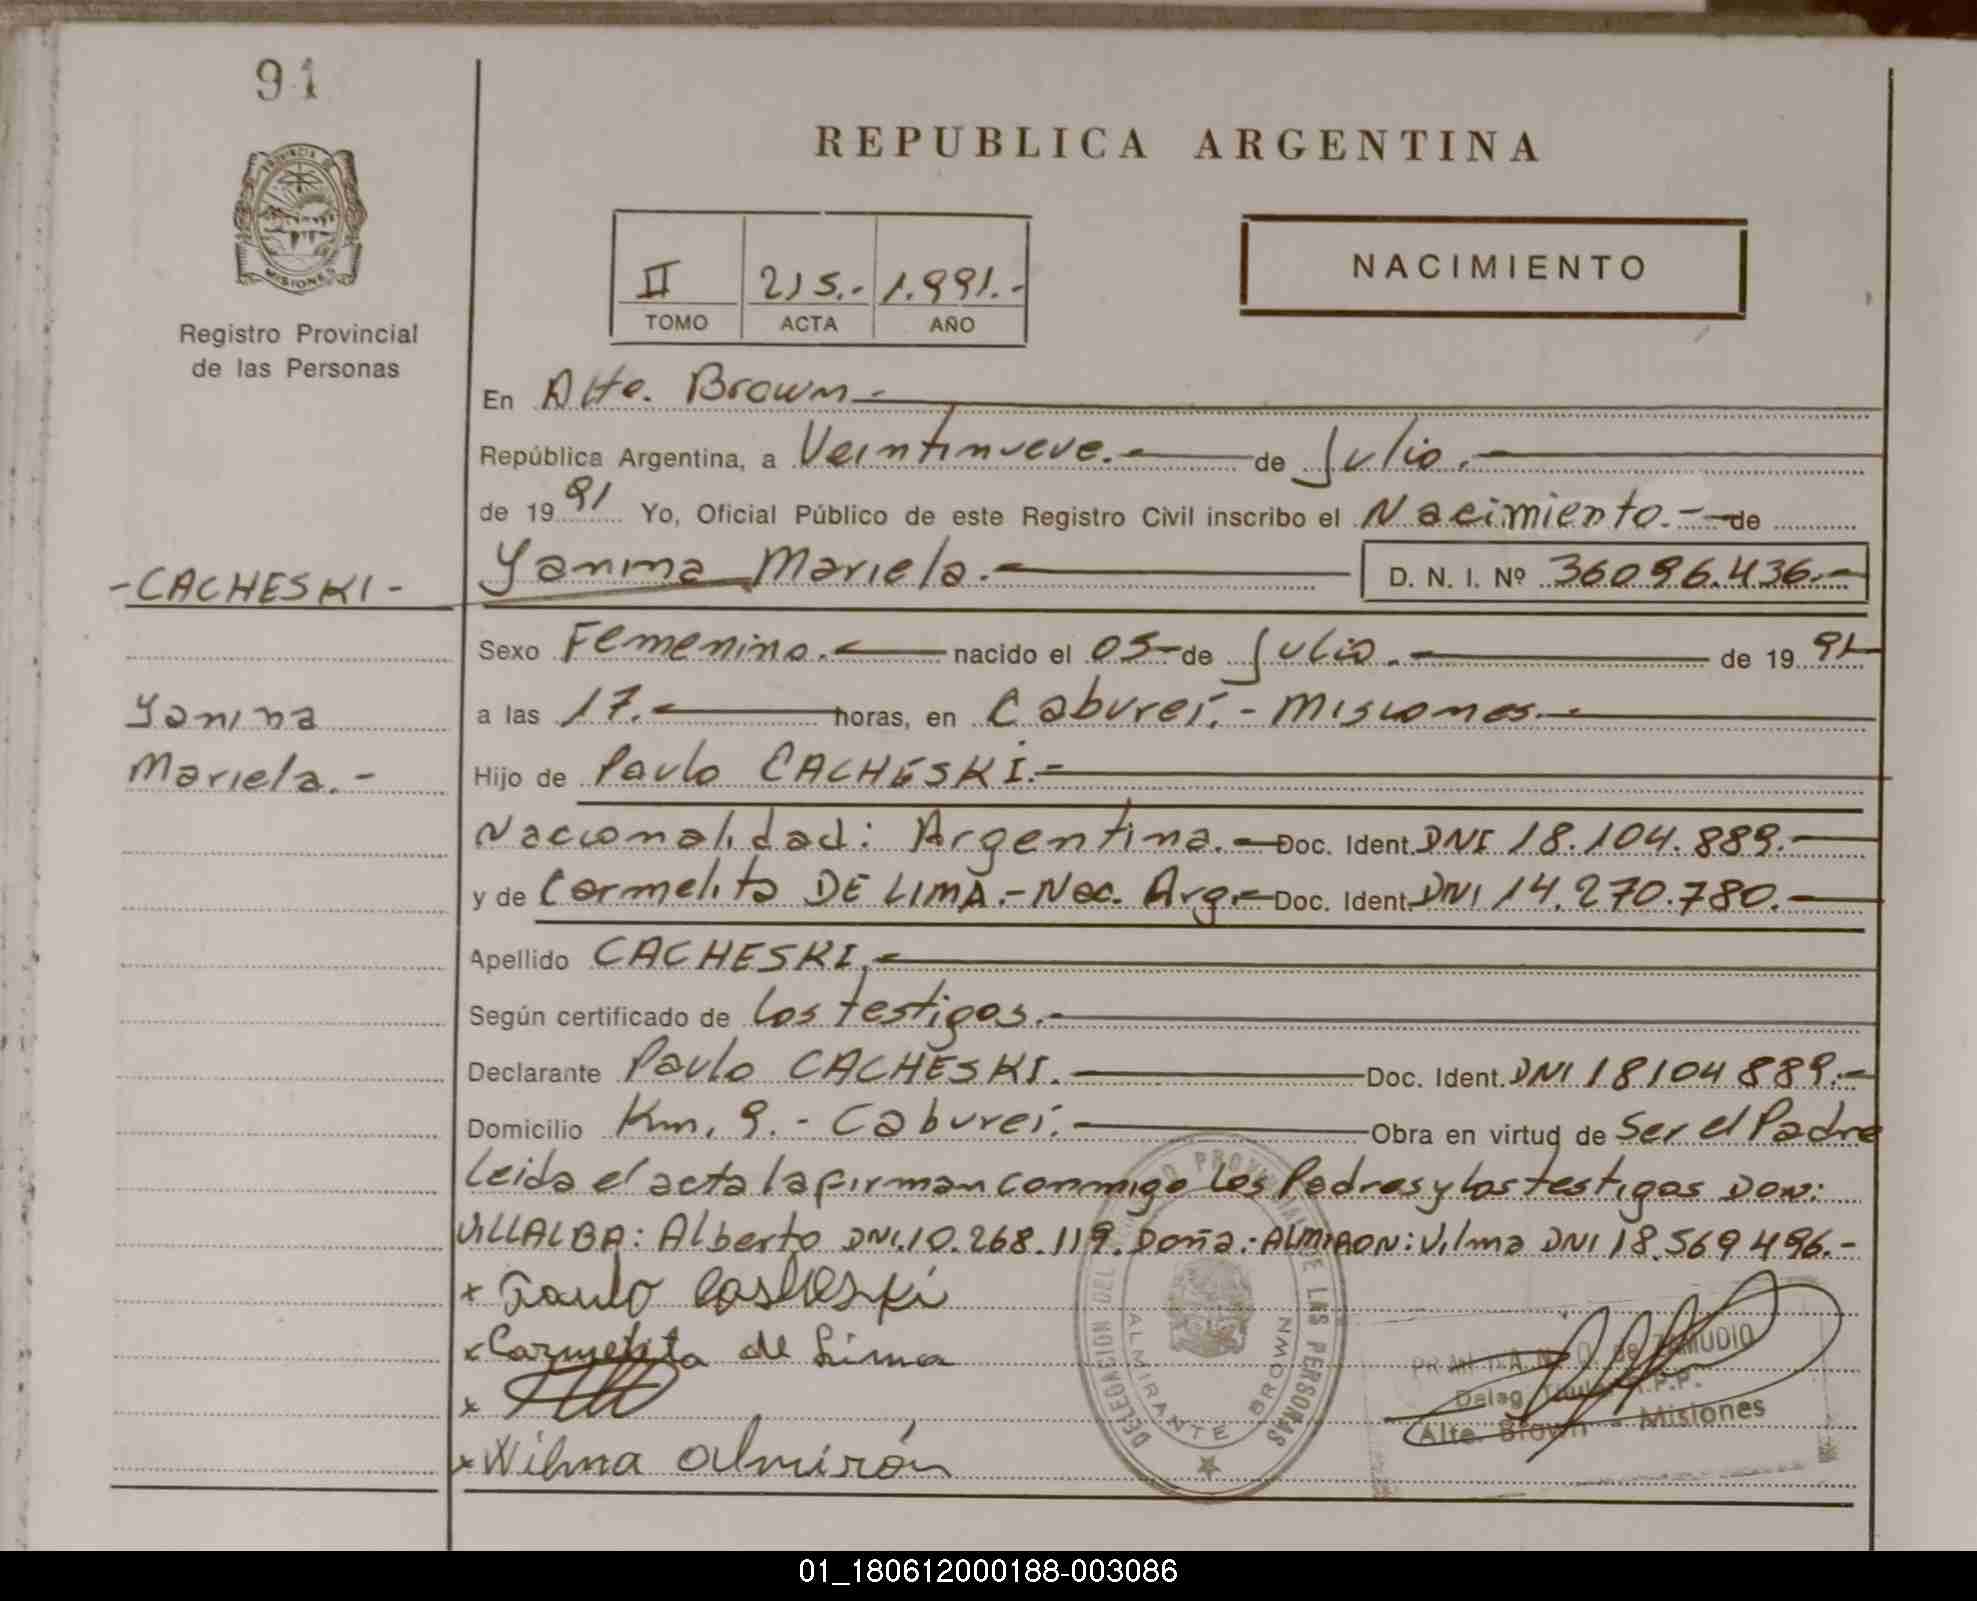 91
REPUBLICA ARGENTINA
PROVINCIA DE
MISIONES
Registro Provincial
de las Personas
II 215.- 1.991.-
TOMO ACTA AÑO
NACIMIENTO
En Alte. Brown.-
República Argentina, a Veintinueve.- de Julio.-
de 1991 Yo, Oficial Público de este Registro Civil inscribo el Nacimiento.- de
-CACHESKI-
Yanina Mariela.- D. N. I. Nº 36096.436.-
Sexo Femenino.- nacido el 05- de Julio.- de 1991-
Yanina
a las 17.- horas, en Cabureí.- Misiones.-
Mariela.-
Hijo de Paulo CACHESKI.-
Nacionalidad: Argentina.- Doc. Ident. DNI 18.104.889.-
y de Carmelita DE LIMA.- Nac. Arg.- Doc. Ident. DNI 14.270.780.-
Apellido CACHESKI.-
Según certificado de los testigos.-
Declarante Paulo CACHESKI.- Doc. Ident. DNI 18104889.-
Domicilio Km, 9.- Cabureí.- Obra en virtud de Ser el Padre
Leida el acta la firman conmigo los Padres y los testigos Don:
VILLALBA: Alberto DNI.10.268.119. Doña: ALMIRON: Vilma DNI 18.569496.-
x Paulo Casheski
x Carmelita de Lima
x
x Wilma Almirón
DELEGACION DEL REGISTRO PROVINCIAL DE LAS PERSONAS
ALMIRANTE BROWN
de ZAMUDIO
Deleg. Titular R.P.P.
Alte. Brown - Misiones
01_180612000188-003086